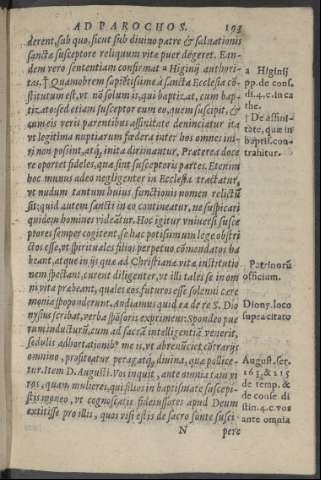 AD PAROCHOS. 193
derent, sub quo, sicut sub diuino patre & saluationis
sanctæ susceptore reliquum vitæ puer degeret. Ean-
dem vero sententiam confirmat ᵃ Higinij authori-
tas. † Quamobrem sapiētissime à sancta Ecclesia cō-
stitutum est, vt nō solum is, qui baptizat, cum bap-
tizato: sed etiam susceptor cum eo, quem suscipit, &
cum eis veris parentibus affinitate deuinciatur ita
vt legitima nuptiarum fœdera inter hos omnes ini-
ri non possint, atq́, inita dirimantur. Præterea doce
re oportet fideles, quæ sint susceptoris partes. Etenim
hoc munus adeo negligenter in Ecclesia tractatur,
vt nudum tantum huius functionis nomen relictū
sit: quid autem sancti in eo contineatur, ne suspicari
quidem homines videātur. Hoc igitur vniuersi susce
ptores semper cogitent, se hac potissimum lege obstri
ctos esse, vt spirituales filios perpetuo cōmendatos ha
beant, atque in ijs quæ ad Christianæ vitæ institutio
nem spectant, curent diligenter, vt illi tales se in om
ni vita præbeant, quales eos futuros esse solenni cere
monia spoponderunt. Audiamus quid ea de re S. Dio
nysius scribat, verba spōsoris exprimens: Spondeo pue
rum inducturū, cum ad sacrā intelligentiā venerit,
sedulis adhortationib⁹ meis, vt abrenūciet cōtrarijs
omnino, profiteatur peragatq́, diuina, quæ pollice-
tur. Item D. Augusti. Vos inquit, ante omnia tam vi
ros, quàm mulieres, qui filios in baptismate suscepi-
stis moneo, vt cognoscatis fideiussores apud Deum
extitisse pro illis, quos visi estis de sacro fonte susci-
N pere
a Higinij
pp. de cons.
di. 4. c. in ca
the.
† De affini-
tate, quæ in
baptis. con-
trahitur.
Patrinorū
officium.
Diony. loco
supea citato
August. ser.
163. & 215
de temp. &
de conse di
stin. 4. c. vos
ante omnia